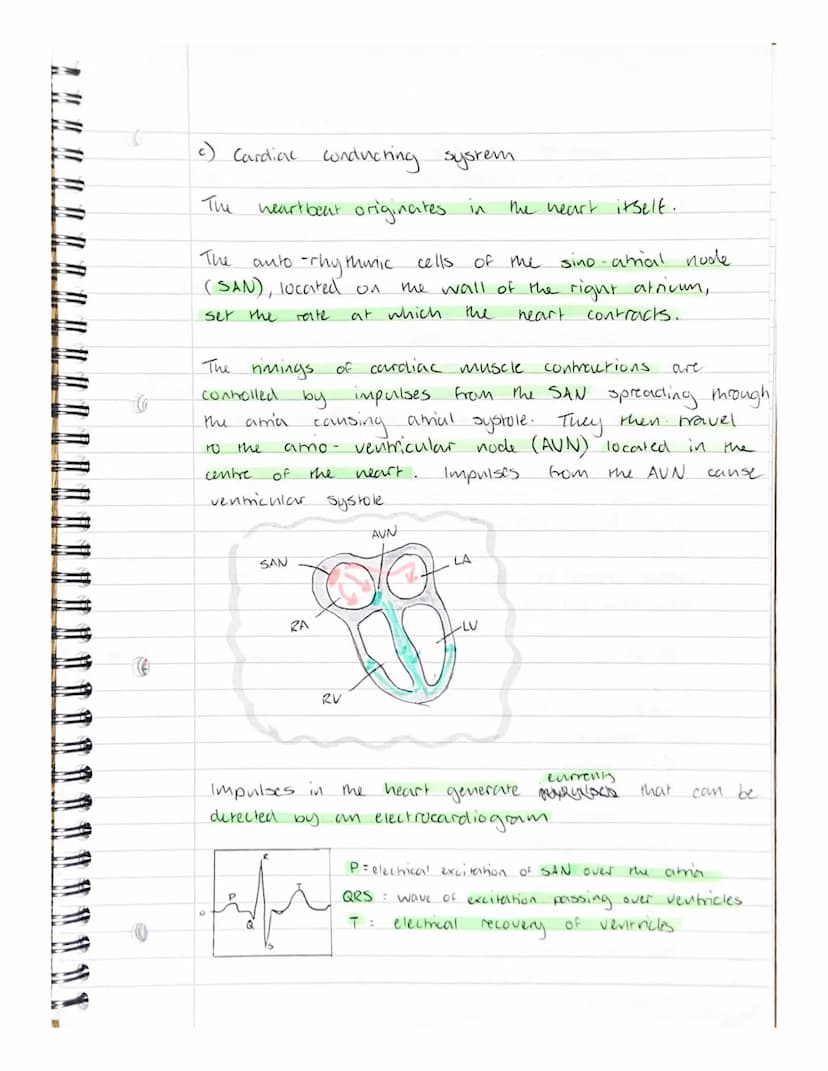 c) Cardiac conducting system
The heartbeat originates in the heart itself.
The auto-rhythmic cells of the sino-atrial node
(SAN), located on the wall of the right atrium,
set the rate at which the heart contracts.
The timings of cardiac muscle contractions are
controlled by impulses from the SAN spreading through
the atria causing atrial systole. They then travel
to the atrio-ventricular node (AVN) located in the
centre of the heart. Impulses from the AVN cause
ventricular systole
AVN
SAN
LA
RA
LV
RV
currents
Impulses in the heart generate that can be
detected by an electrocardiogram
R
P
T
0
Q
S
P = electrical excitation of SAN over the atria
QRS : wave of excitation passing over ventricles
T : electrical recovery of ventricles